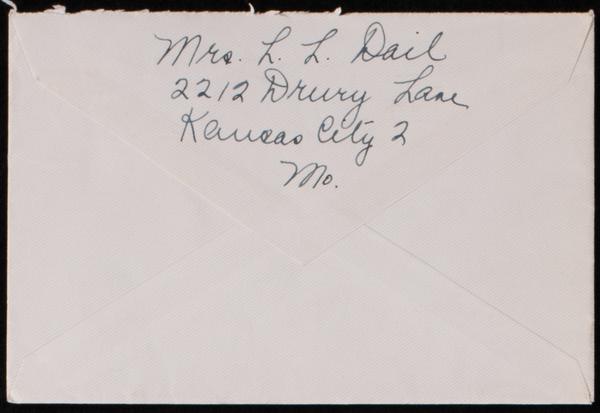 Mrs. L. L. Dail
2212 Drury Lane
Kansas City 2
Mo.